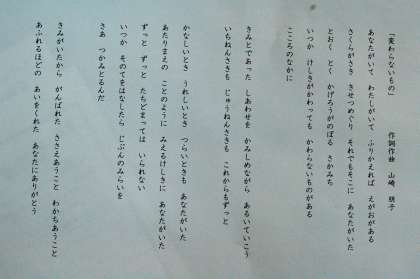 「変わらないもの」　作詞作曲　山﨑　朋子
あなたがいて　わたしがいて　ふりかえれば　えがおがある
さくらがさき　きせつめぐり　それでもそこに　あなたがいた
とおく　とく　かげろうがのぼる　さかみち
いつか　けしきがかわっても　かわらないものがある
こころのなかに
きみとであった　しあわせを　かみしめながら　あるいていこう
いちねんさきも　じゅうねんさきも　これからもずっと
かなしいとき　うれしいとき　つらいときも　あなたがいた
あたりまえの　ことのように　みえるけしきに　あなたがいた
ずっと　ずっと　たちどまっては　いられない
いつか　そのてをはなしたら　じぶんのみらいを
さあ　つかみとるんだ
きみがいたから　がんばれた　ささえあうこと　わかちあうこと
あふれるほどの　あいをくれた　あなたにありがとう